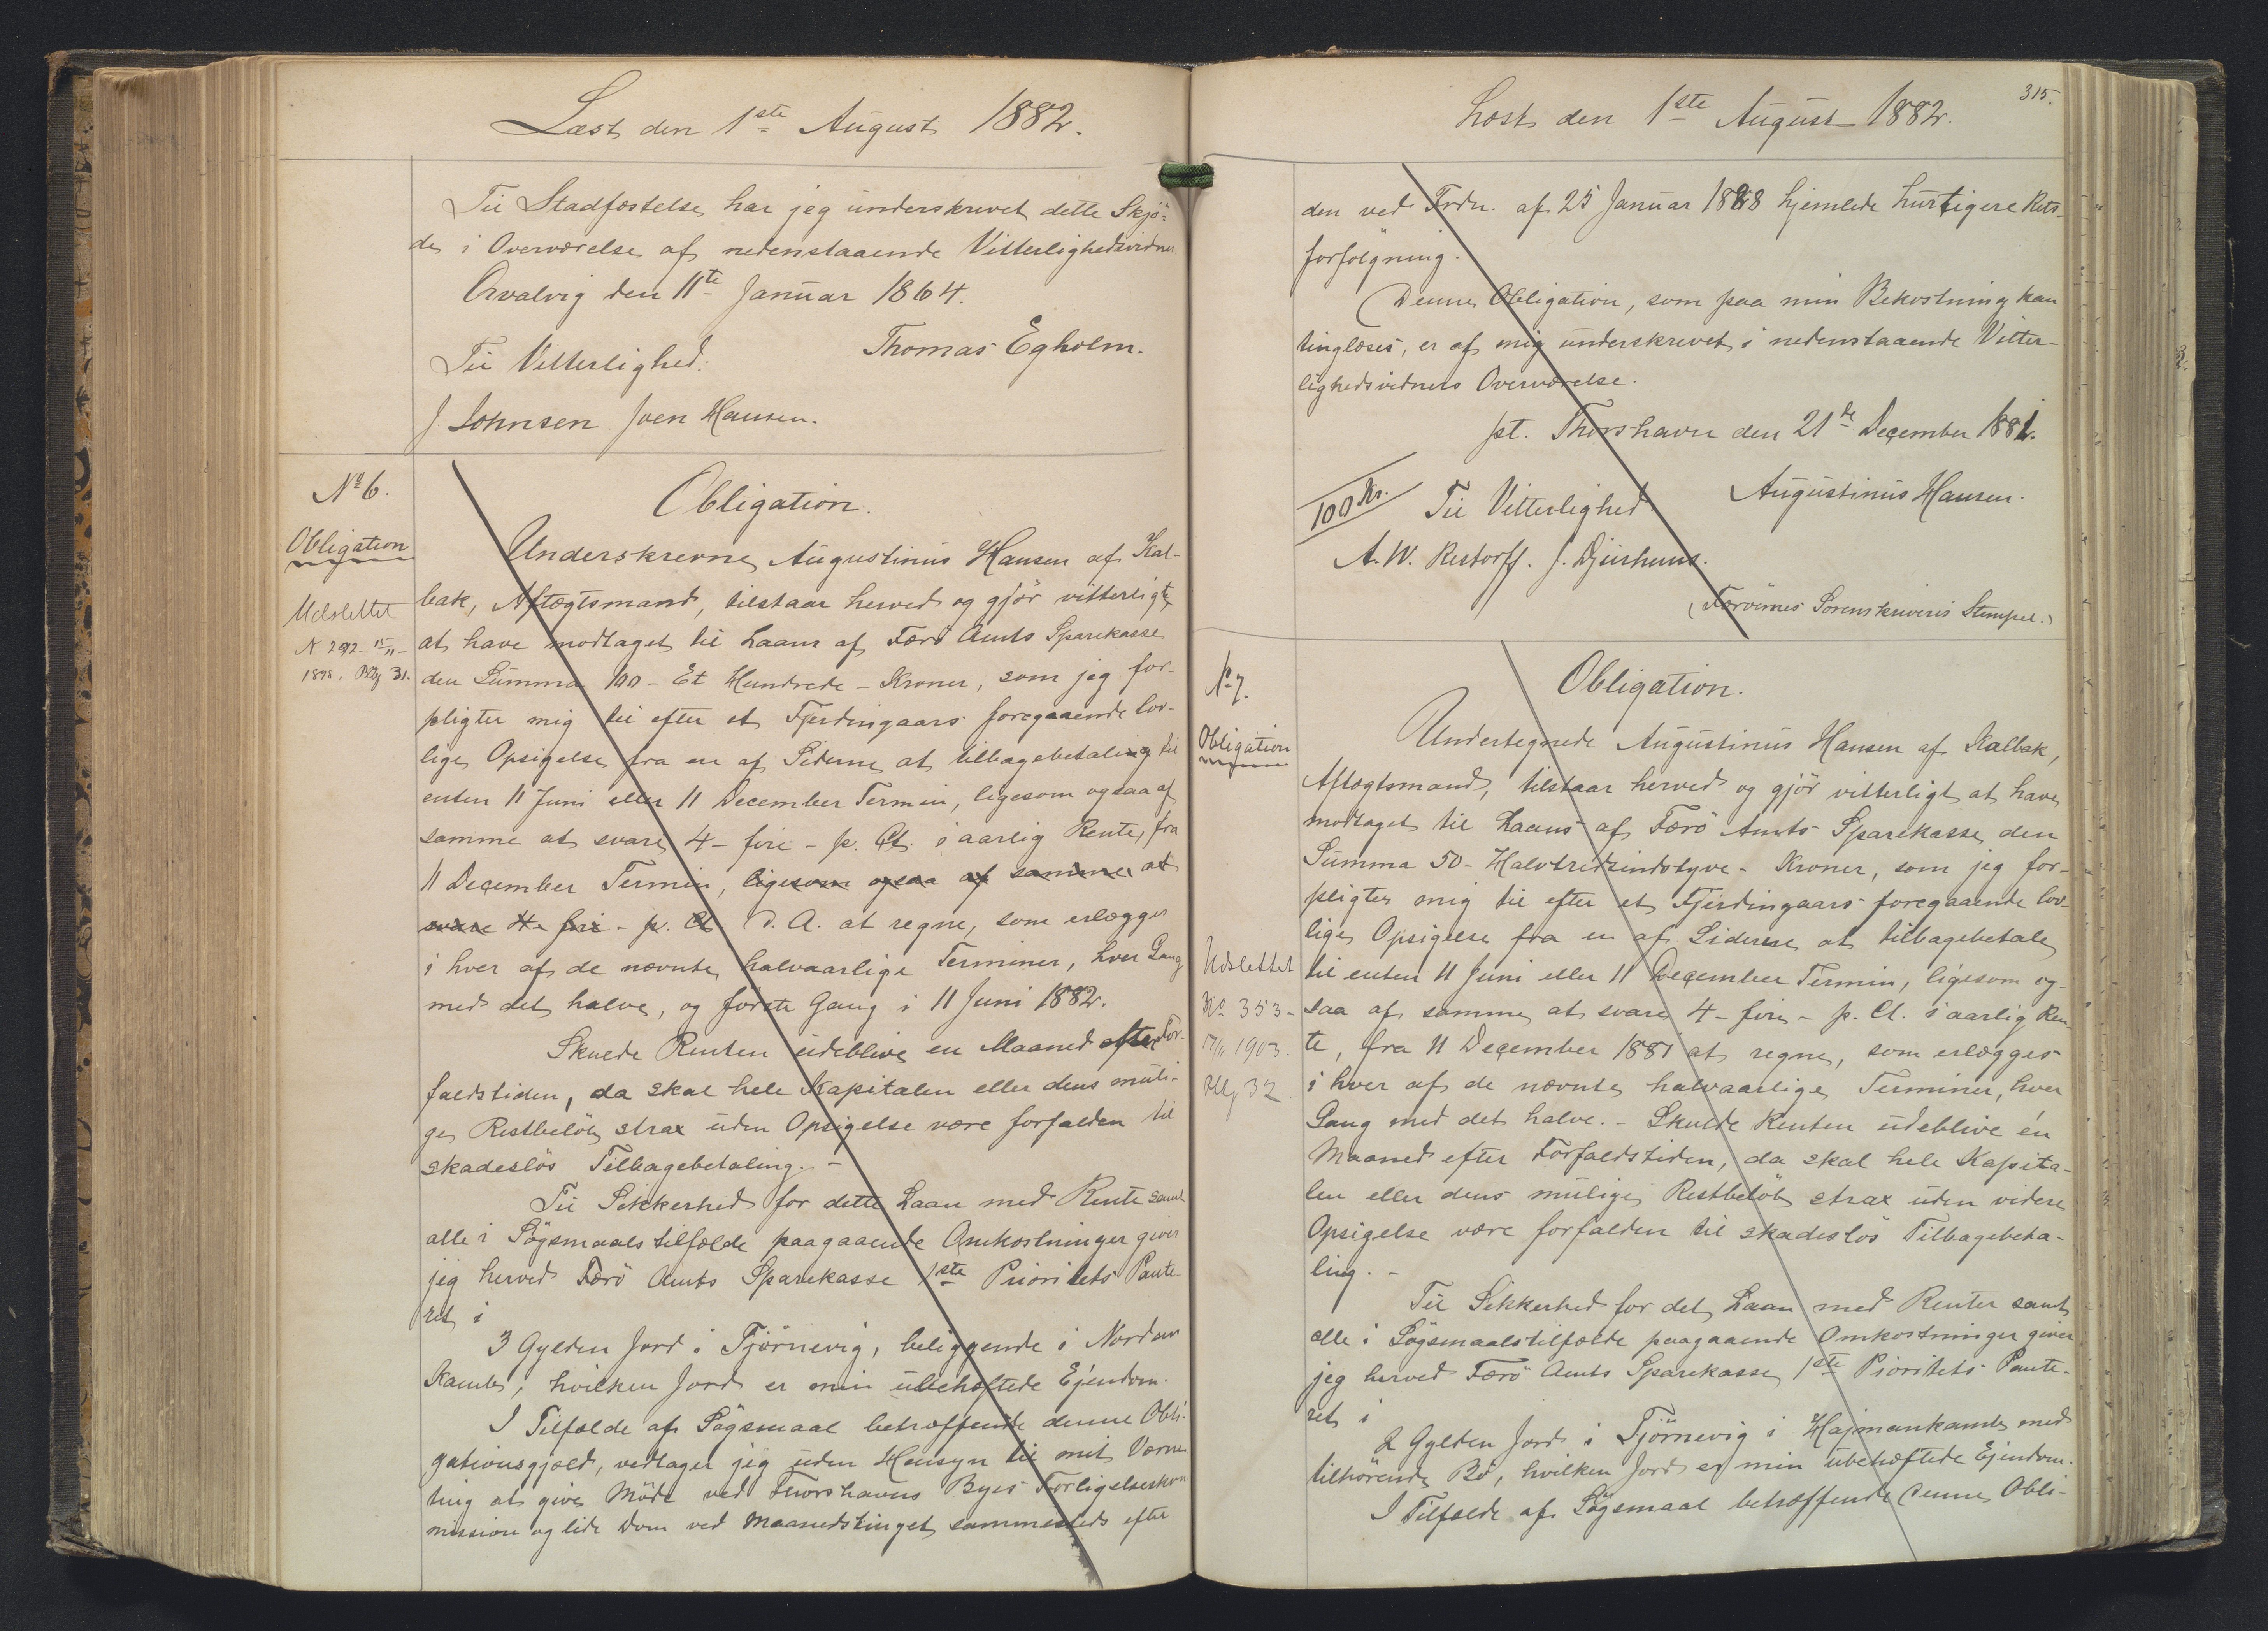 Læst den 1ste August 1882.
Til Stadfæstelse har jeg underskrevet dette Skjö-
de i Overværelse af nedenstaaende Vitterlighedsvidner.
Qvalvig den 11te Januar 1864.
Thomas Egholm.
Til Vitterlighed:
J. Johnsen Joen Hansen.
No 6.
Obligation
Udslettet
N 292 - 15/11 -
1898. Pag 31.
Obligation.
Underskrevne Augustinus Hansen af Kal-
bak, Aftægtsmand, tilstaar herved og gjör vitterligt,
at have modtaget til Laans af Færö Amts Sparekasse
den Summa 100 - Et Hundrede - Kroner, som jeg for-
pligter mig til efter et Fjerdingaars foregaaende lov-
lige Opsigelse fra en af Siderne at tilbagebetaling til
enten 11 Juni eller 11 December Termin, ligesom ogsaa af
samme at svare 4 - fire - p. Ct. i aarlig Rente, fra
11 December Termin, ligesom ogsaa af samme at
svare 4 - fire - p. Ct. d. A. at regne, som erlægges
i hver af de nævnte halvaarlige Terminer, hver Gang
med det halve, og förste Gang i 11 Juni 1882.
Skulde Renten udeblive en Maaned efter For-
faldstiden, da skal hele Kapitalen eller dens muli-
ge Restbelöb strax uden Opsigelse være forfalden til
skadeslös Tilbagebetaling. -
Til Sikkerhed for dette Laan med Rente samt
alle i Sögsmaalstilfælde paagaaende Omkostninger giver
jeg herved Færö Amts Sparekasse 1ste Prioritets Pante-
ret i
3 Gylden Jord i Tjörnevig, beliggende i Nordan
Kamb, hvilken Jord er min ubehæftede Ejendom.
I Tilfælde af Sögsmaal betræffende denne Obli-
gationsgjæld, vedtager jeg uden Hensyn til mit Værne-
ting at give Möde ved Thorshavns Byes Forligelseskom
mission og lide Dom ved Maanedstinget sammesteds efter
315.
Læst den 1ste August 1882.
den ved Frdn. af 25 Januar 1828 hjemlede hurtigere Rets-
forfölgning.
Denne Obligation, som paa min Bekostning kan
tinglæses, er af mig underskrevet i nedenstaaende Vitter-
lighedsvidners Overværelse.
pt. Thorshavn den 21de December 1881.
Augustinus Hansen.
100 Kr.
Til Vitterlighed
A. W. Restorff. J. Djurhuus.
(Færöernes Sorenskriveris Stempel.)
No 7.
Obligation
Udslettet
No 353 -
17/11 1903.
Pag 32.
Obligation.
Undertegnede Augustinus Hansen af Kalbak,
Aftægtsmand, tilstaar herved og gjör vitterligt at have
modtaget til Laans af Færö Amts Sparekasse den
Summa 50 - Halvtredsindstyve - Kroner, som jeg for-
pligter mig til efter et Fjerdingaars foregaaende lov-
lige Opsigelse fra en af Siderne at tilbagebetale
til enten 11 Juni eller 11 December Termin, ligesom og-
saa af samme at svare 4 - fire - p. Ct. i aarlig Ren-
te, fra 11 December 1881 at regne, som erlægges
i hver af de nævnte halvaarlige Terminer, hver
Gang med det halve. - Skulde Renten udeblive én
Maaned efter Forfaldstiden, da skal hele Kapita-
len eller dens mulige Restbelöb strax uden videre
Opsigelse være forfalden til skadeslös Tilbagebeta-
ling. -
Til Sikkerhed for det Laan med Renter samt
alle i Sögsmaalstilfælde paagaaende Omkostninger giver
jeg herved Færö Amts Sparekasse 1ste Prioritets Pante-
ret i
2 Gylden Jord i Tjörnevig i Hajmankamb med
tilhörende Bö, hvilken Jord er min ubehæftede Ejendom.
I Tilfælde af Sögsmaal betræffende denne Obli-